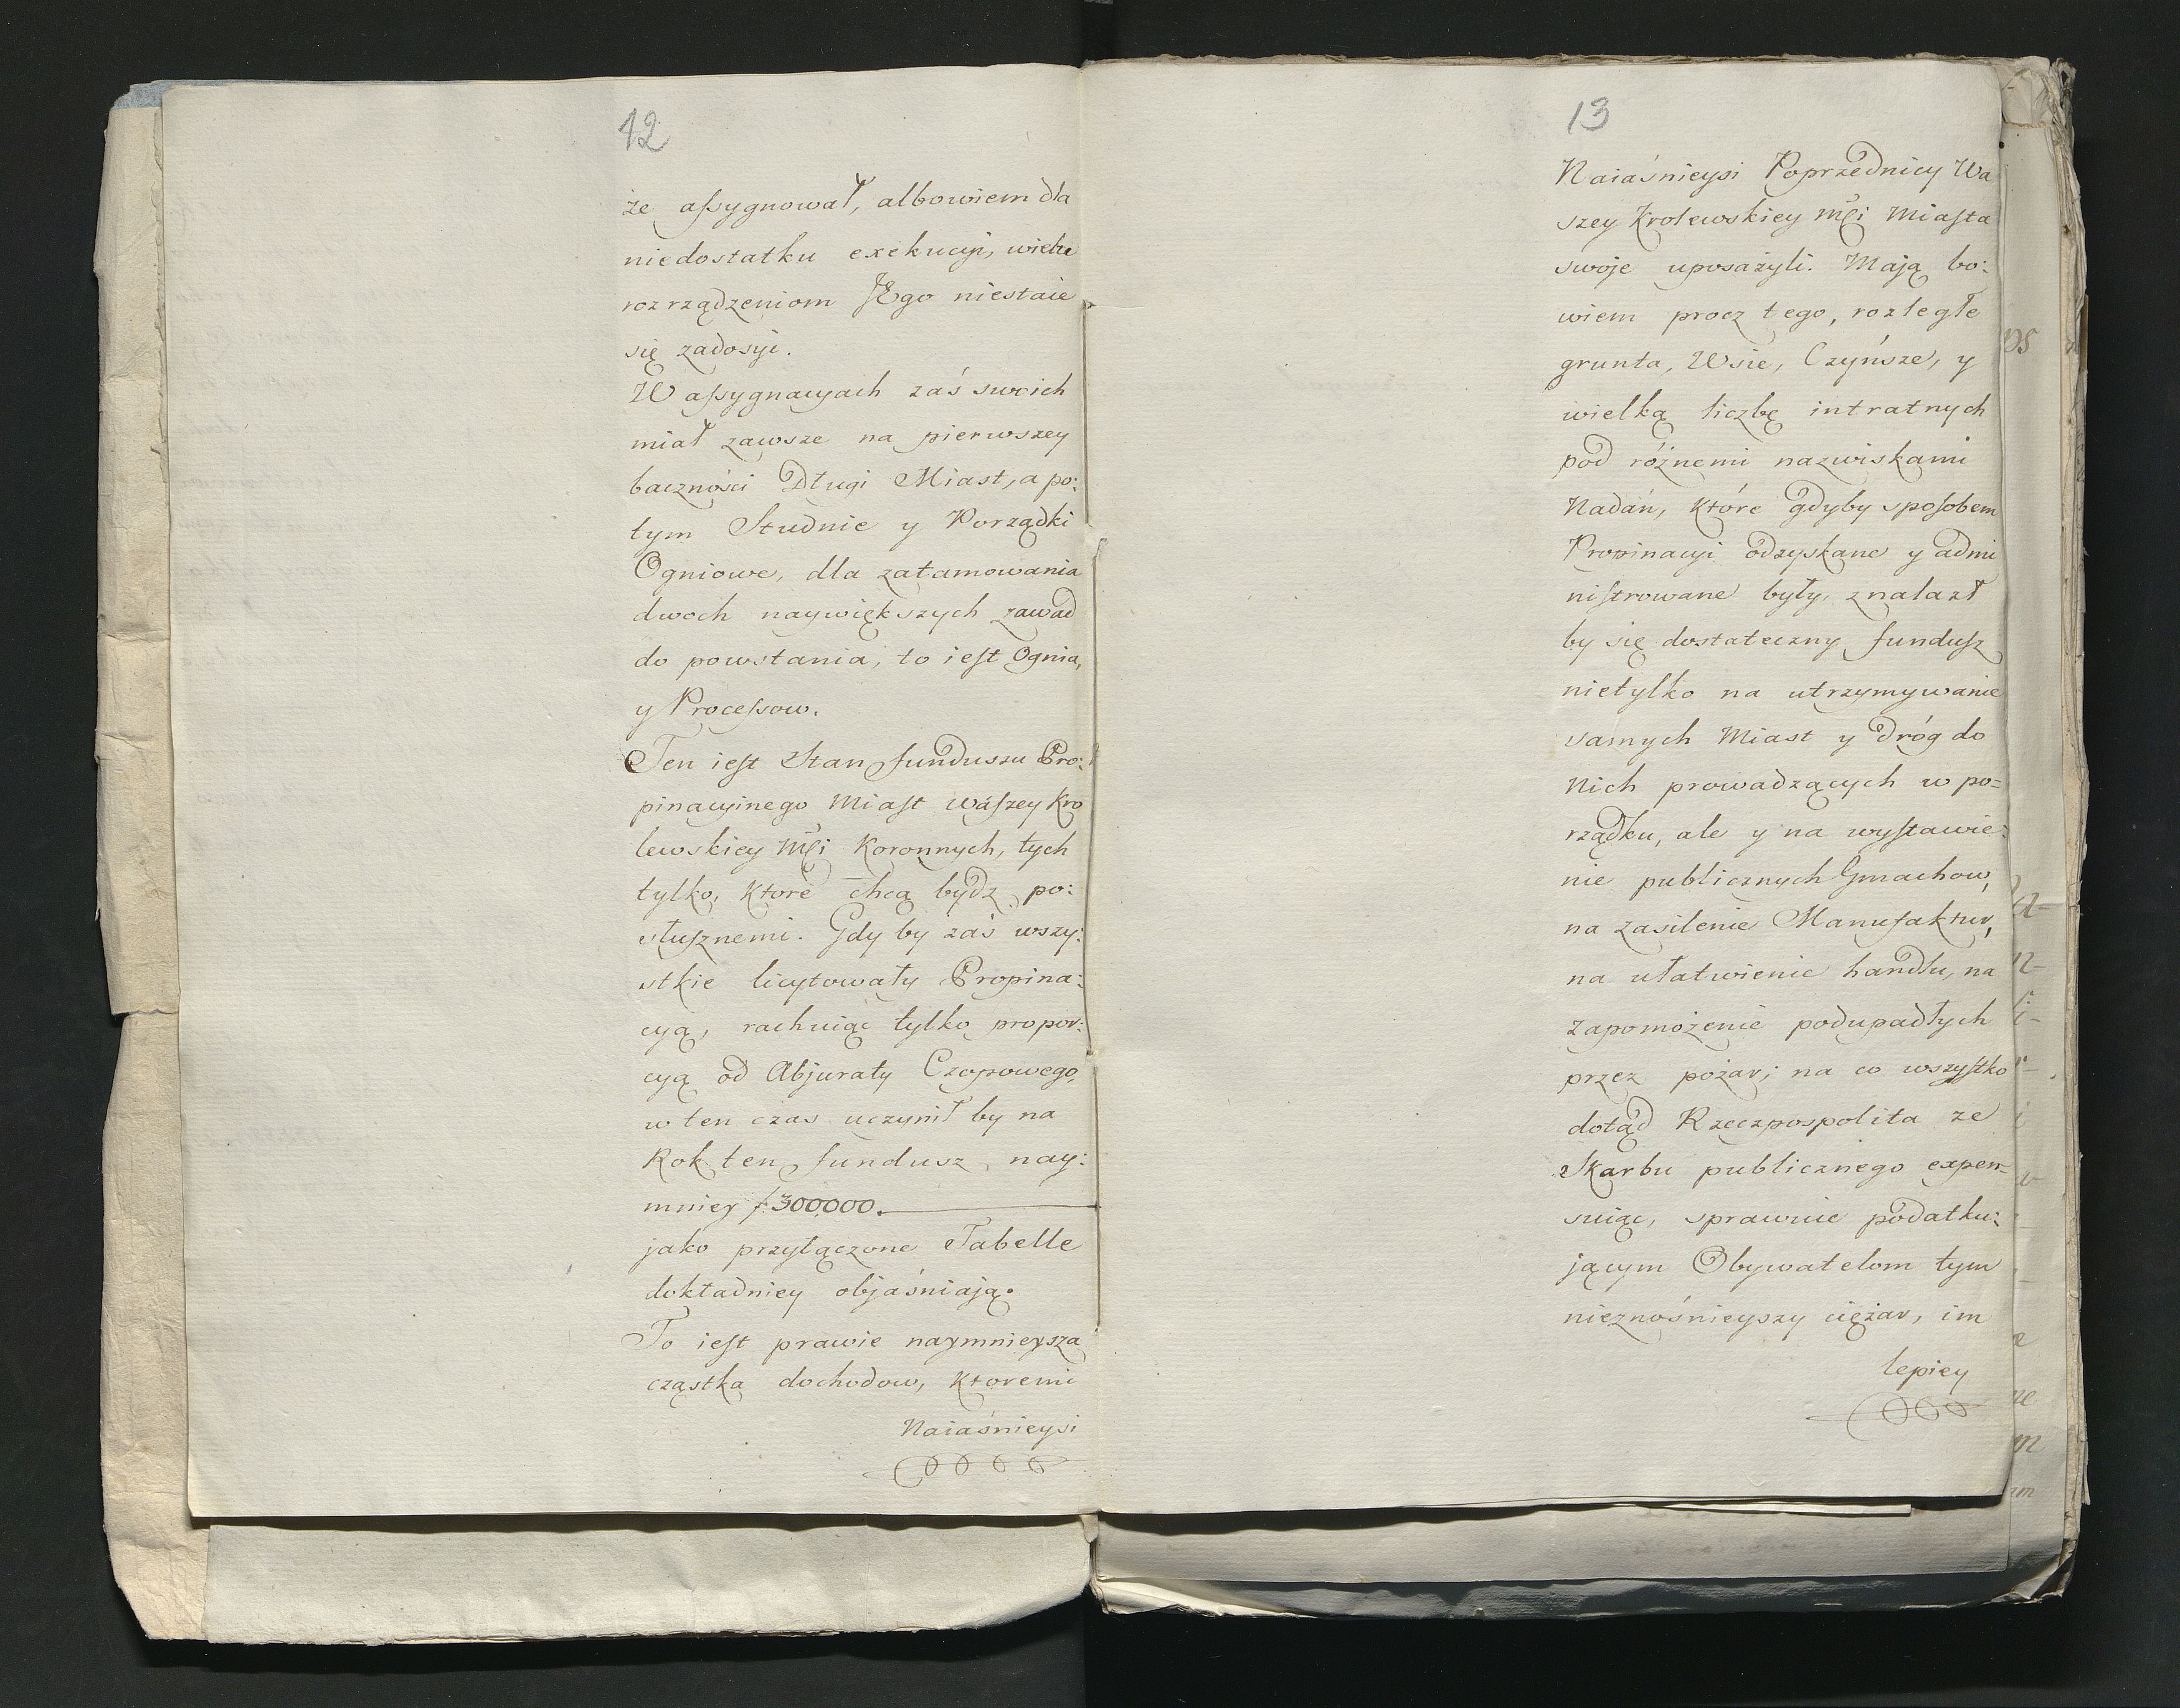 12
że assygnował, albowiem dla
niedostatku exekucyi, wielu
rozrządzeniom JEgo niestaie
się zadosyć.
W assygnacyach zaś swoich
miał zawsze na pierwszey
baczności Długi Miast, a po:
tym Studnie y Porządki
Ogniowe, dla zatamowania
dwoch naywiększych zawad
do powstania, to iest Ognia,
y Processow.
Ten iest Stan funduszu Pro:
pinacyinego Miast Waszey Kro
lewskiey Mści Koronnych, tych
tylko, które chcą bydź po:
słusznemi. Gdy by zaś wszy:
stkie licytowały Propina:
cyą, rachuiąc tylko propor:
cyą od Abjuraty Czopowego,
w ten czas uczynił by na
Rok ten fundusz nay:
mniey f 300000.
jako przyłączone Tabelle
dokładniey objaśniają.
To iest prawie naymnieysza
cząstka dochodow, ktoremi
Naiaśnieysi
13
Naiaśnieysi Poprzednicy Wa
szey Krolewskiey Mści Miasta
swoje uposażyli. Mają bo:
wiem procz tego, rozległe
grunta, Wsie, Czyńsze, y
wielką liczbę intratnych
pod różnemi nazwiskami
Nadań, które gdyby sposobem
Propinacyi odzyskane y admi
nistrowane były, znalazł
by się dostateczny fundusz
nietylko na utrzymywanie
samych Miast y dróg do
Nich prowadzących w po=
rządku, ale y na wystawie:
nie publicznych Gmachow,
na zasilenie Manufaktur,
na ułatwienie handlu, na
zapomożenie podupadłych
przez pożar; na co wszystko
dotąd Rzeczpospolita ze
Skarbu publicznego expen=
suiąc, sprawuie podatku:
jącym Obywatelom tym
nieznośnieyszy ciężar, im
lepiey